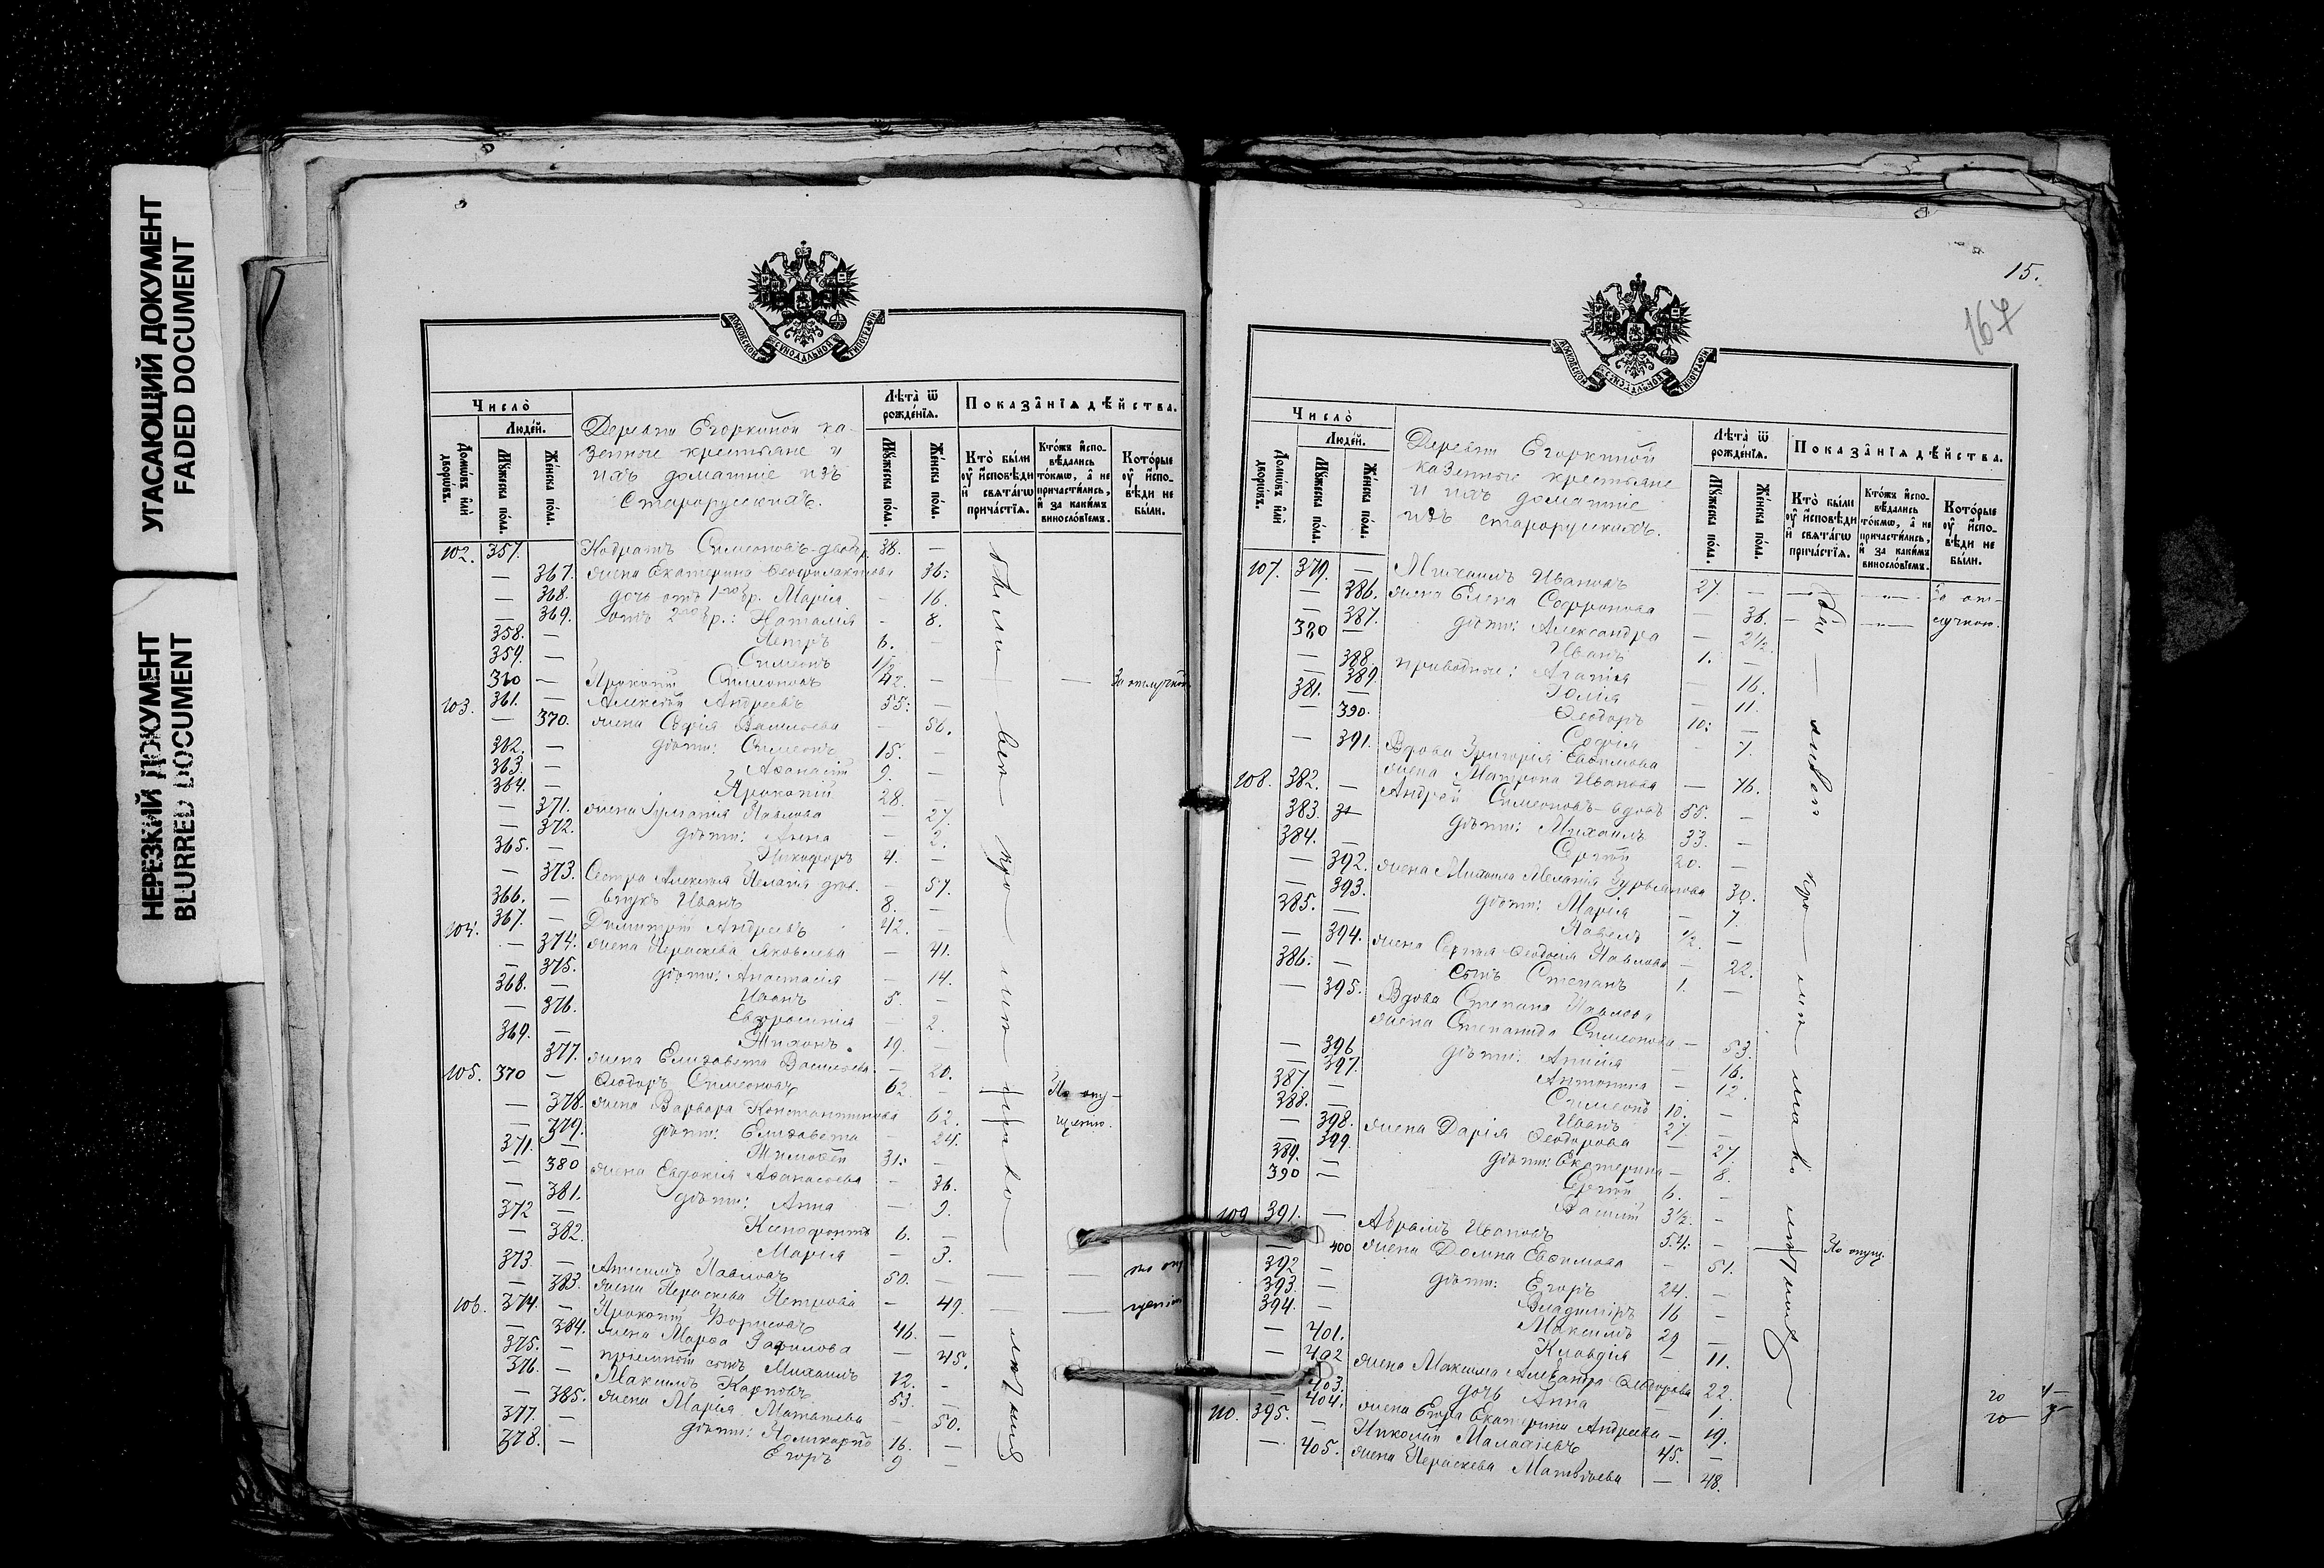 УГАСАЮЩИЙ ДОКУМЕНТ
FADED DOCUMENT
НЕРЕЗКИЙ ДОКУМЕНТ
BLURRED DOCUMENT
МОСКОВСКОЙ СУНОДАЛЬНОЙ ТИПОГРАФІИ
Число̀
Людей.
Домѡвъ или дворѡвъ.
Мꙋжеска пола.
Женска пола.
Деревни Егоркиной ка-
зенные крестьяне и
ихъ домашніе изъ
Старорусскихъ.
Лѣта ѿ рожденія.
Мꙋжеска пола.
Женска пола.
Показанїѧ дѣйства.
Кто были ᲂу исповѣди и свѧтагѡ причастїѧ.
Ктожъ исповѣдались токмѡ, а не причастились, и за какимъ винословїемъ.
Которые ᲂу исповѣди не были.
102. 357. — Кодратъ Симеоновъ 38. —
— 367. жена Екатерина Ѳеофилактова 36.
— 368. дочь отъ 1го бр. Марія — 16.
— 369. отъ 2го бр.: Наталія — 8.
358. — Петръ 6.
359. — Симеонъ 1/2
360 — Прокопій Симеоновъ 42. — За отлучкой
103. 361. — Алексѣй Андреевъ 55. —
— 370. жена Софія Васильева — 56.
362. — дѣти: Симеонъ 15. —
363. — Аѳанасій 9. —
364. — Прокопій 28. —
— 371. жена Гликерія Павлова — 27.
— 372. дѣти: Анна — 2.
365. — Никифоръ 4. —
— 373. Сестра Алексѣя Пелагія дѣв. — 57.
366. — внукъ Иванъ 8. —
104. 367. — Димитрій Андреевъ 42. —
— 374. жена Параскева Яковлева — 41.
— 375. дѣти: Анастасія — 14.
368. — Иванъ 5. —
— 376. Евфросинія — 2.
369. — Тихонъ 19. —
— 377. жена Елизавета Васильева — 20.
105. 370 — Ѳеодоръ Симеоновъ 62. — По опу-
— 378. жена Варвара Константинова 62. щенію.
— 379. дѣти: Елизавета — 24.
371. — Тимоѳей 31. —
— 380 жена Евдокія Аѳанасьева — 36.
— 381. дѣти: Анна — 9.
372 — Ксенофонтъ 6. —
— 382. Марія — 3.
373. — Анисимъ Павловъ 50. — по опу
— 383. жена Параскева Петрова — 49. щенію
106. 374. — Прокопій Борисовъ 46. —
— 384. жена Марѳа — 45.
375. — пріемный сынъ Михаилъ 12. —
376. — Максимъ Карповъ 53. —
— 385. жена Марія Матвѣева — 50.
377. — дѣти: Поликарпъ 16. —
378. — Егоръ 9 —
15.
167
МОСКОВСКОЙ СУНОДАЛЬНОЙ ТИПОГРАФІИ
Число̀
Людей.
Домѡвъ или дворѡвъ.
Мꙋжеска пола.
Женска пола.
Деревни Егоркиной
казенные крестьяне
и ихъ домашніе
изъ старорусскихъ.
Лѣта ѿ рожденія.
Мꙋжеска пола.
Женска пола.
Показанїѧ дѣйства.
Кто были ᲂу исповѣди и свѧтагѡ причастїѧ.
Ктожъ исповѣдались токмѡ, а не причастились, и за какимъ винословїемъ.
Которые ᲂу исповѣди не были.
107. 379. — Михаилъ Ивановъ 27. — За от-
— 386. жена Елена Софронова — 38. лучкою.
— 387. дѣти: Александра — 2 1/2.
380 — Иванъ 1. —
— 388. приводные: Агапія — 16.
— 389. Юлія — 11.
381. — Ѳеодоръ 10. —
— 390. Софія — 7.
— 391. Вдова Григорія Евѳимова
жена Матрона Иванова — 76.
108. 382. — Андрей Симеоновъ вдовъ 55. —
383. — дѣти: Михаилъ 33. —
384. — Сергій 20. —
— 392. жена Михаила Меланія 30.
— 393. дѣти: Марія — 7.
385. — Павелъ 1/2. —
— 394. жена Сергія Ѳеодосія Павлова — 22.
386. — сынъ Степанъ 1. —
— 395. Вдова Степана Павлова
жена Степанида Симеонова — 53.
— 396 дѣти: Анисія — 16.
— 397. Антонина — 12.
387. — Симеонъ 10. —
388. — Иванъ 27. —
— 398. жена Дарія Ѳеодорова — 27.
— 399. дѣти: Екатерина — 8.
389. — Сергій 6. —
390 — Василій 3 1/2. —
109 391. — Абрамъ Ивановъ 54. — По опущ.
— 400 жена Домна Евѳимова — 51.
392 — дѣти: Егоръ 24. —
393. — Владиміръ 16 —
394. — Максимъ 29 —
— 401. Клавдія — 11.
— 402 жена Максима Александра Ѳеодорова 22.
403. дочь Анна — 1.
— 404. жена Егора Екатерина Андреева — 19.
110. 395. — Николай Малафіевъ 45. —
— 405. жена Параскева Матвѣева — 48.